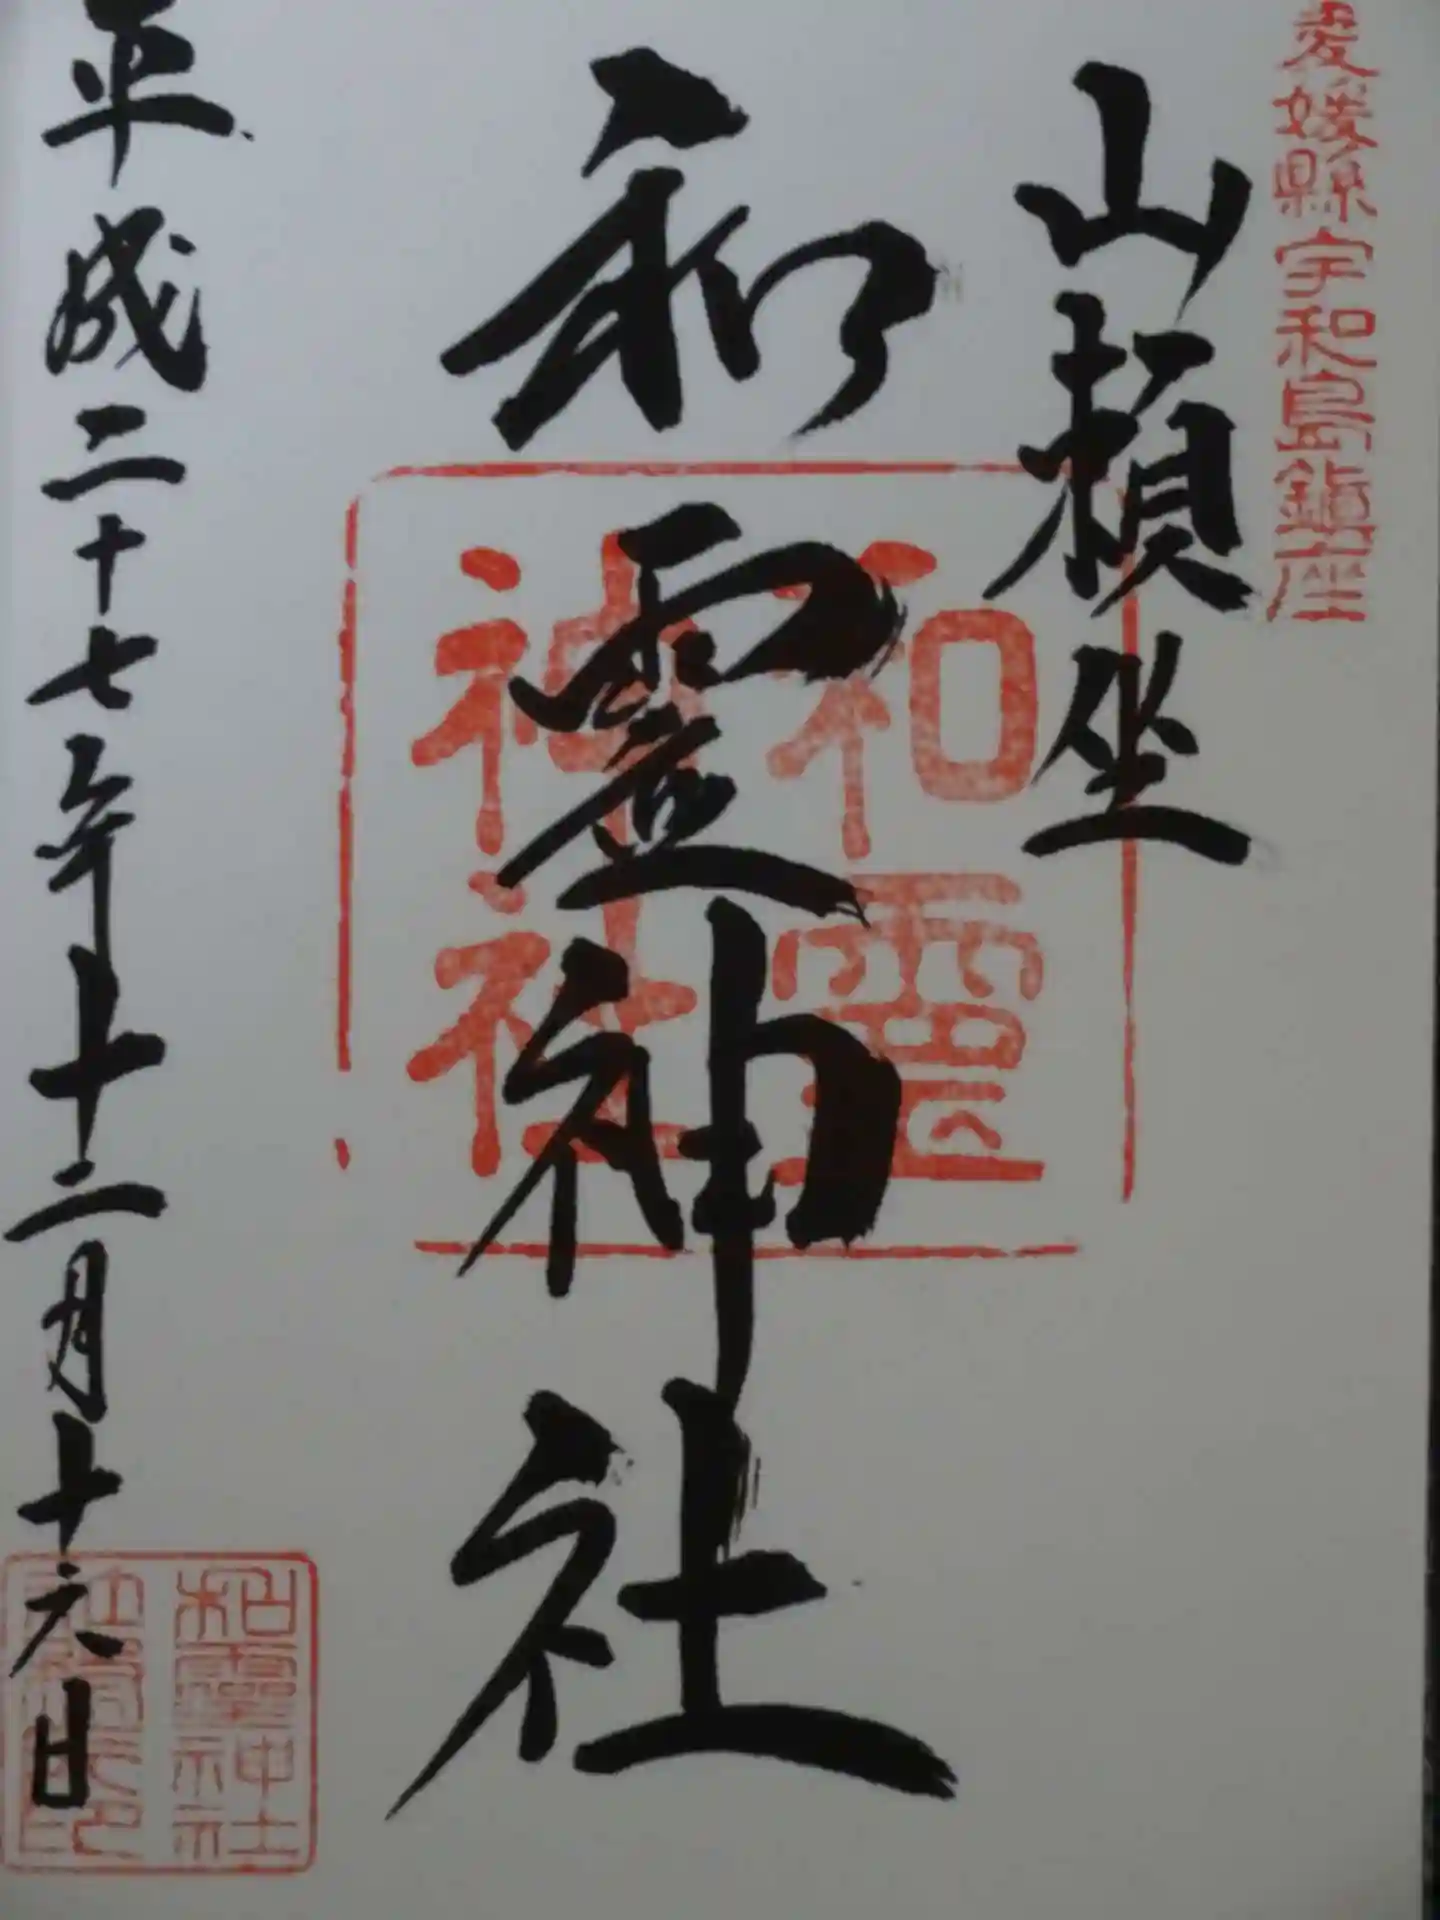 愛媛縣宇和島鎮座
山頼坐
和霊神社
和霊
神社
平成二十七年十二月十六日
和霊神社